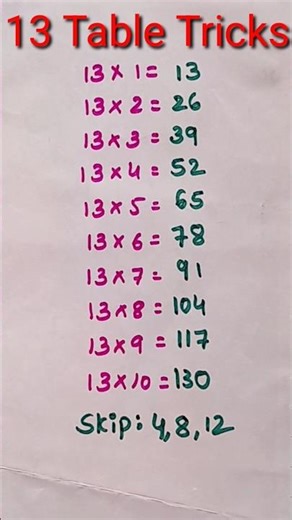 13 Table Tricks
13 x 1 = 13
13 x 2 = 26
13 x 3 = 39
13 x 4 = 52
13 x 5 = 65
13 x 6 = 78
13 x 7 = 91
13 x 8 = 104
13 x 9 = 117
13 x 10 = 130
Skip: 4, 8, 12